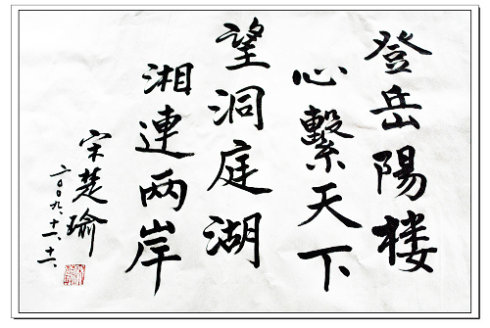 登岳陽楼
心繫天下
望洞庭湖
湘連两岸
宋楚瑜
二〇〇九、十一、十一